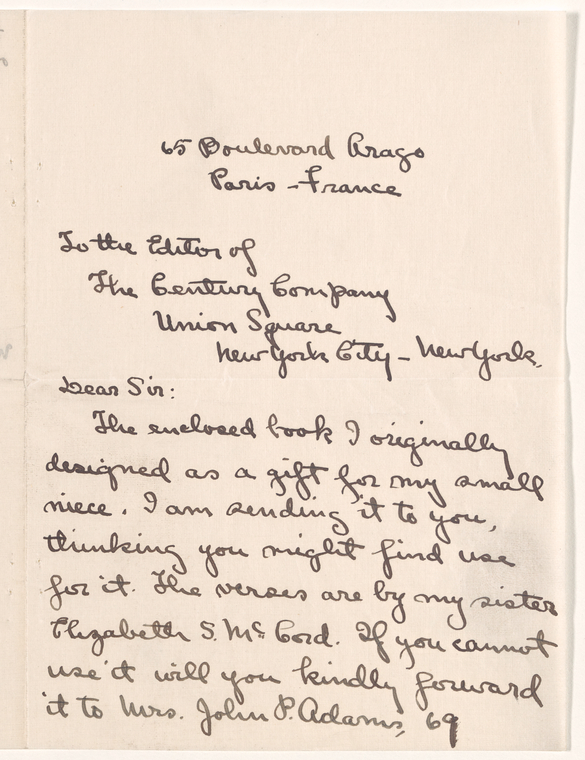 65 Boulevard Arago
Paris - France
To the Editor of
The Century Company
Union Square
New York City - New York.
Dear Sir:
The enclosed book I originally
designed as a gift for my small
niece. I am sending it to you,
thinking you might find use
for it. The verses are by my sister
Elizabeth S. McCord. If you cannot
use it will you kindly forward
it to Mrs. John P. Adams, 69